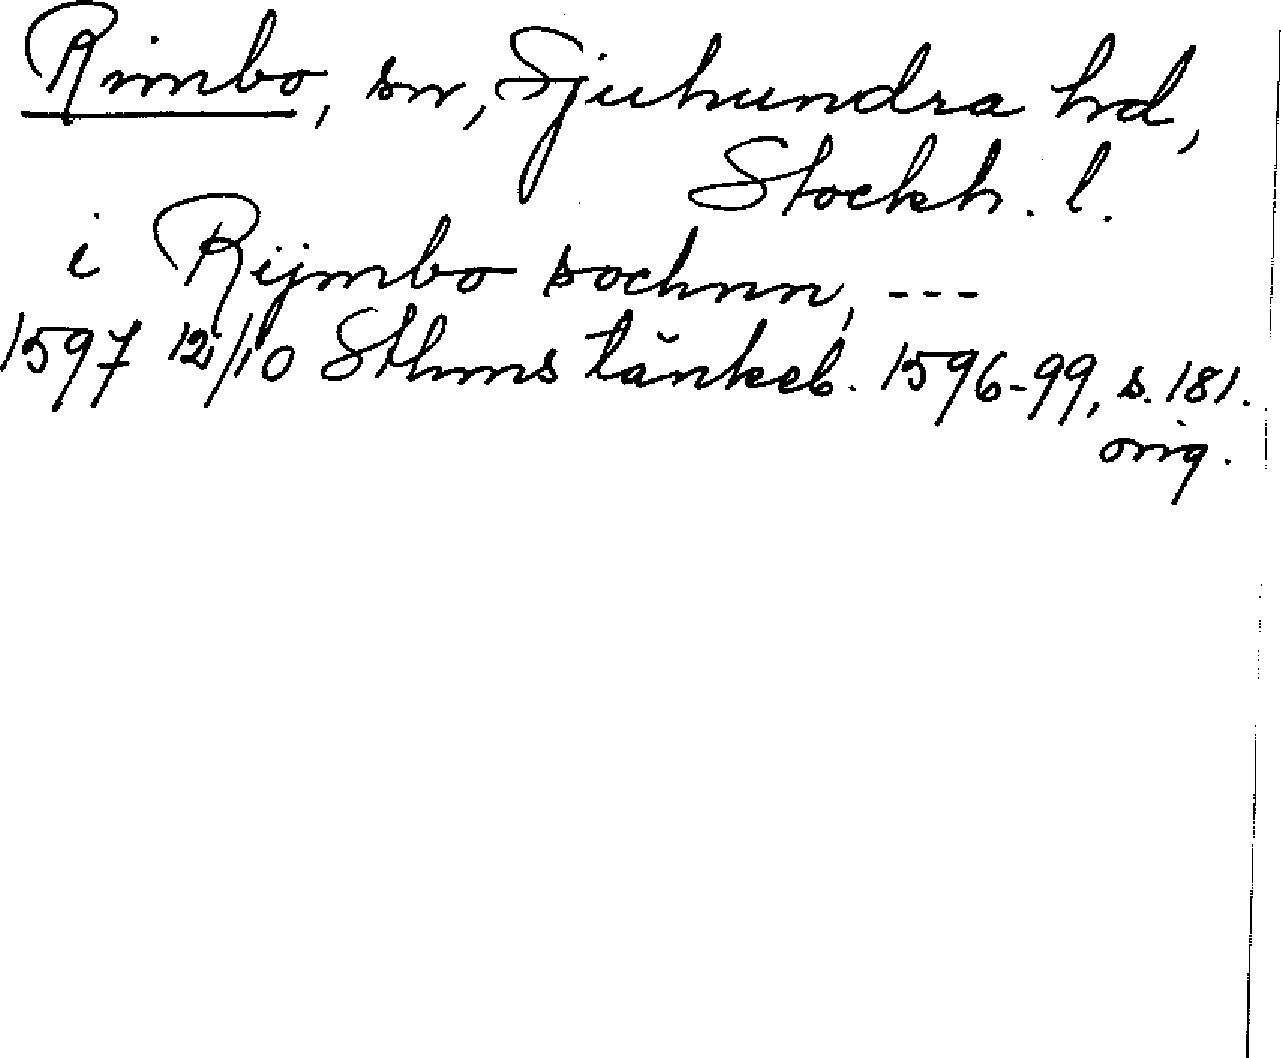 Rimbo, sn, Sjuhundra hd,
Stockh. l.
i Rijmbo sochnn, ---
1597 12/10 Sthms tänkeb. 1596-99, s. 181.
orig.